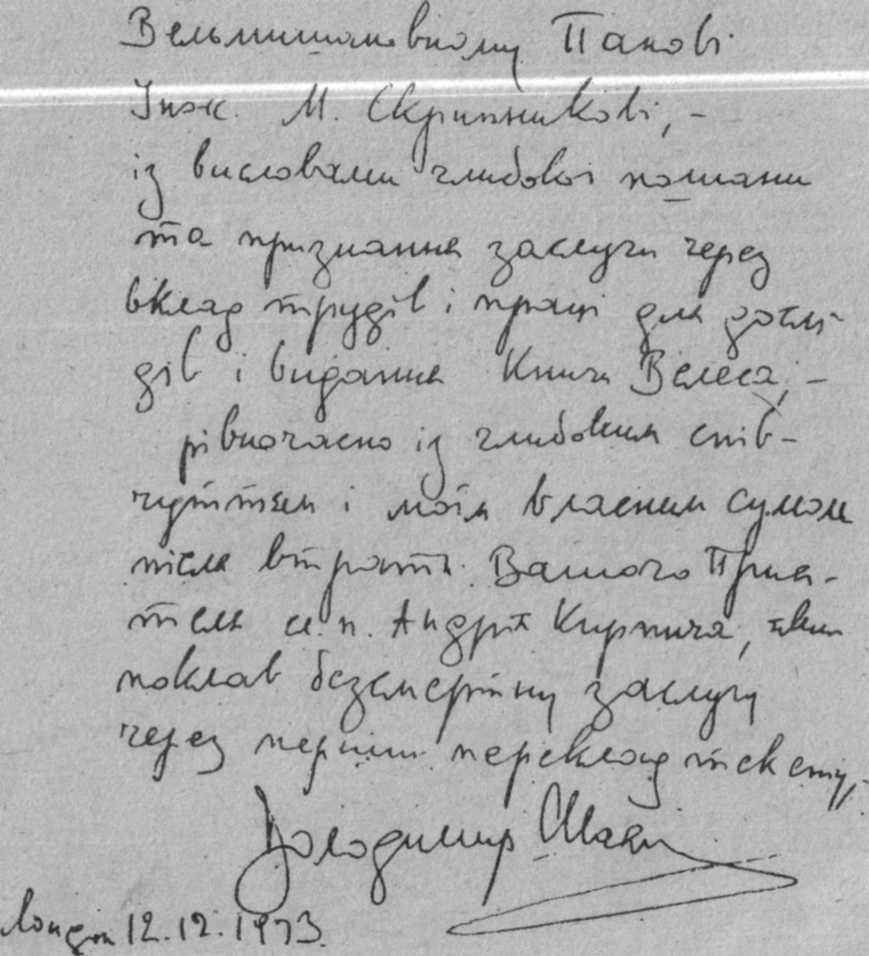 Вельмишановному Панові
Інж. М. Скрипникові, –
із висловами глибокої пошани
та признання заслуги через
вклад трудів і праці для дослі-
дів і видання Книги Велеса, –
рівночасно із глибоким спів-
чуттям і моїм власним сумом
після втрати Вашого Прия-
теля с. п. Андрія Кирпича, який
поклав безсмертну заслугу
через перший переклад тексту, –
Володимир Шаян
Лондон 12.12.1973.